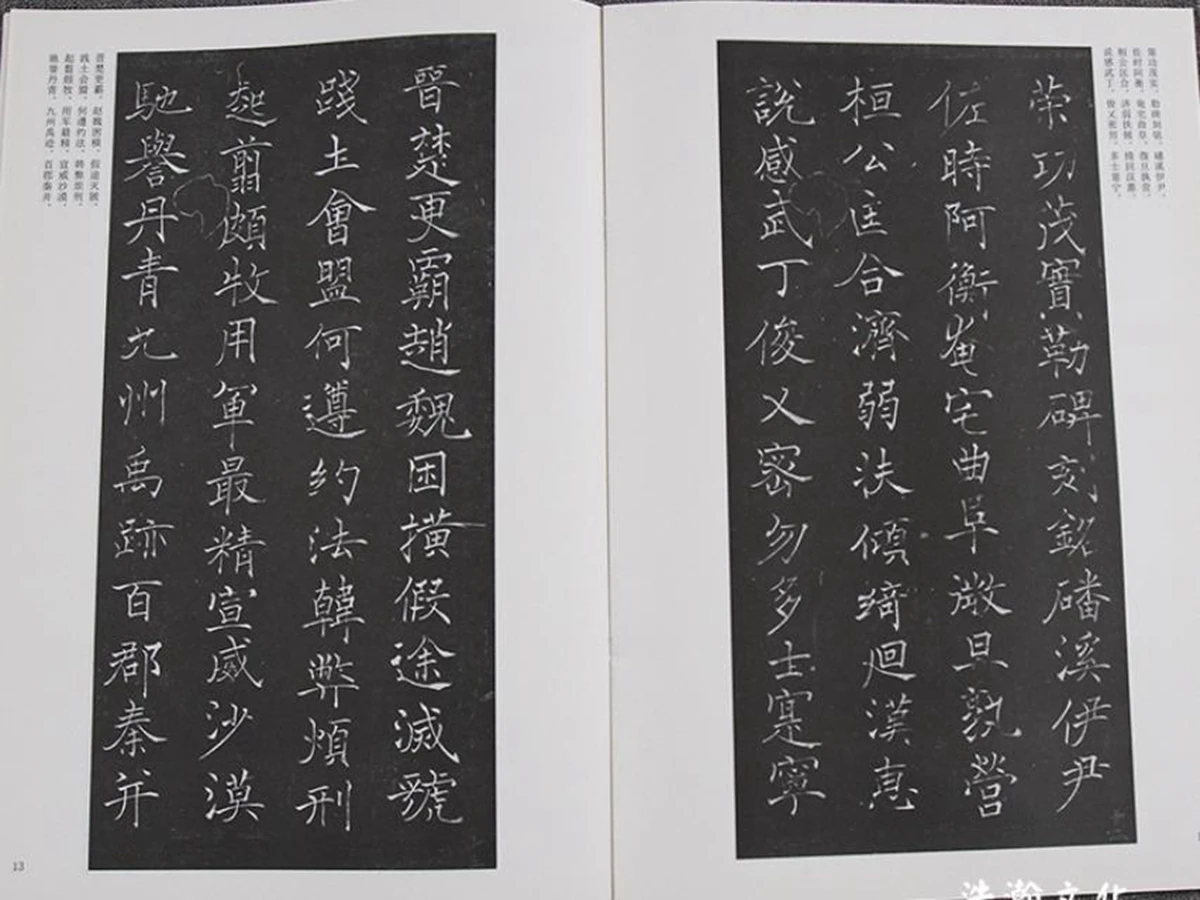 策功茂实，勒碑刻铭。磻溪伊尹，
佐时阿衡。奄宅曲阜，微旦孰营。
桓公匡合，济弱扶倾。绮回汉惠，
说感武丁。俊乂密勿，多士寔宁。
策功茂實勒碑刻銘磻溪伊尹
佐時阿衡奄宅曲阜微旦孰營
桓公匡合濟弱扶傾綺迴漢惠
說感武丁俊乂密勿多士寔寧
晉楚更霸趙魏困橫假途滅虢
踐土會盟何遵約法韓弊煩刑
起翦頗牧用軍最精宣威沙漠
馳譽丹青九州禹跡百郡秦并
晋楚更霸，赵魏困横。假途灭虢，
践土会盟。何遵约法，韩弊烦刑。
起翦颇牧，用军最精。宣威沙漠，
驰誉丹青。九州禹迹，百郡秦并。
13
浩瀚文化